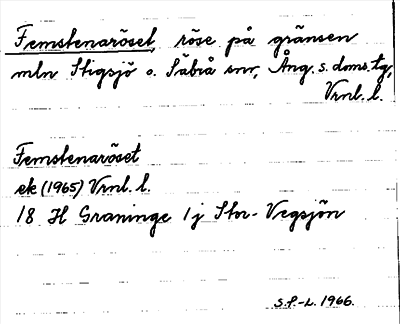 Femstenaröset, röse på gränsen
mln Stigsjö o. Säbrå snr, Ång. s. doms. tg,
Vrnl. l.
Femstenaröset
ek (1965) Vrnl. l.
18 H Graninge 1j Stor-Vegsjön
S.F.-L. 1966.